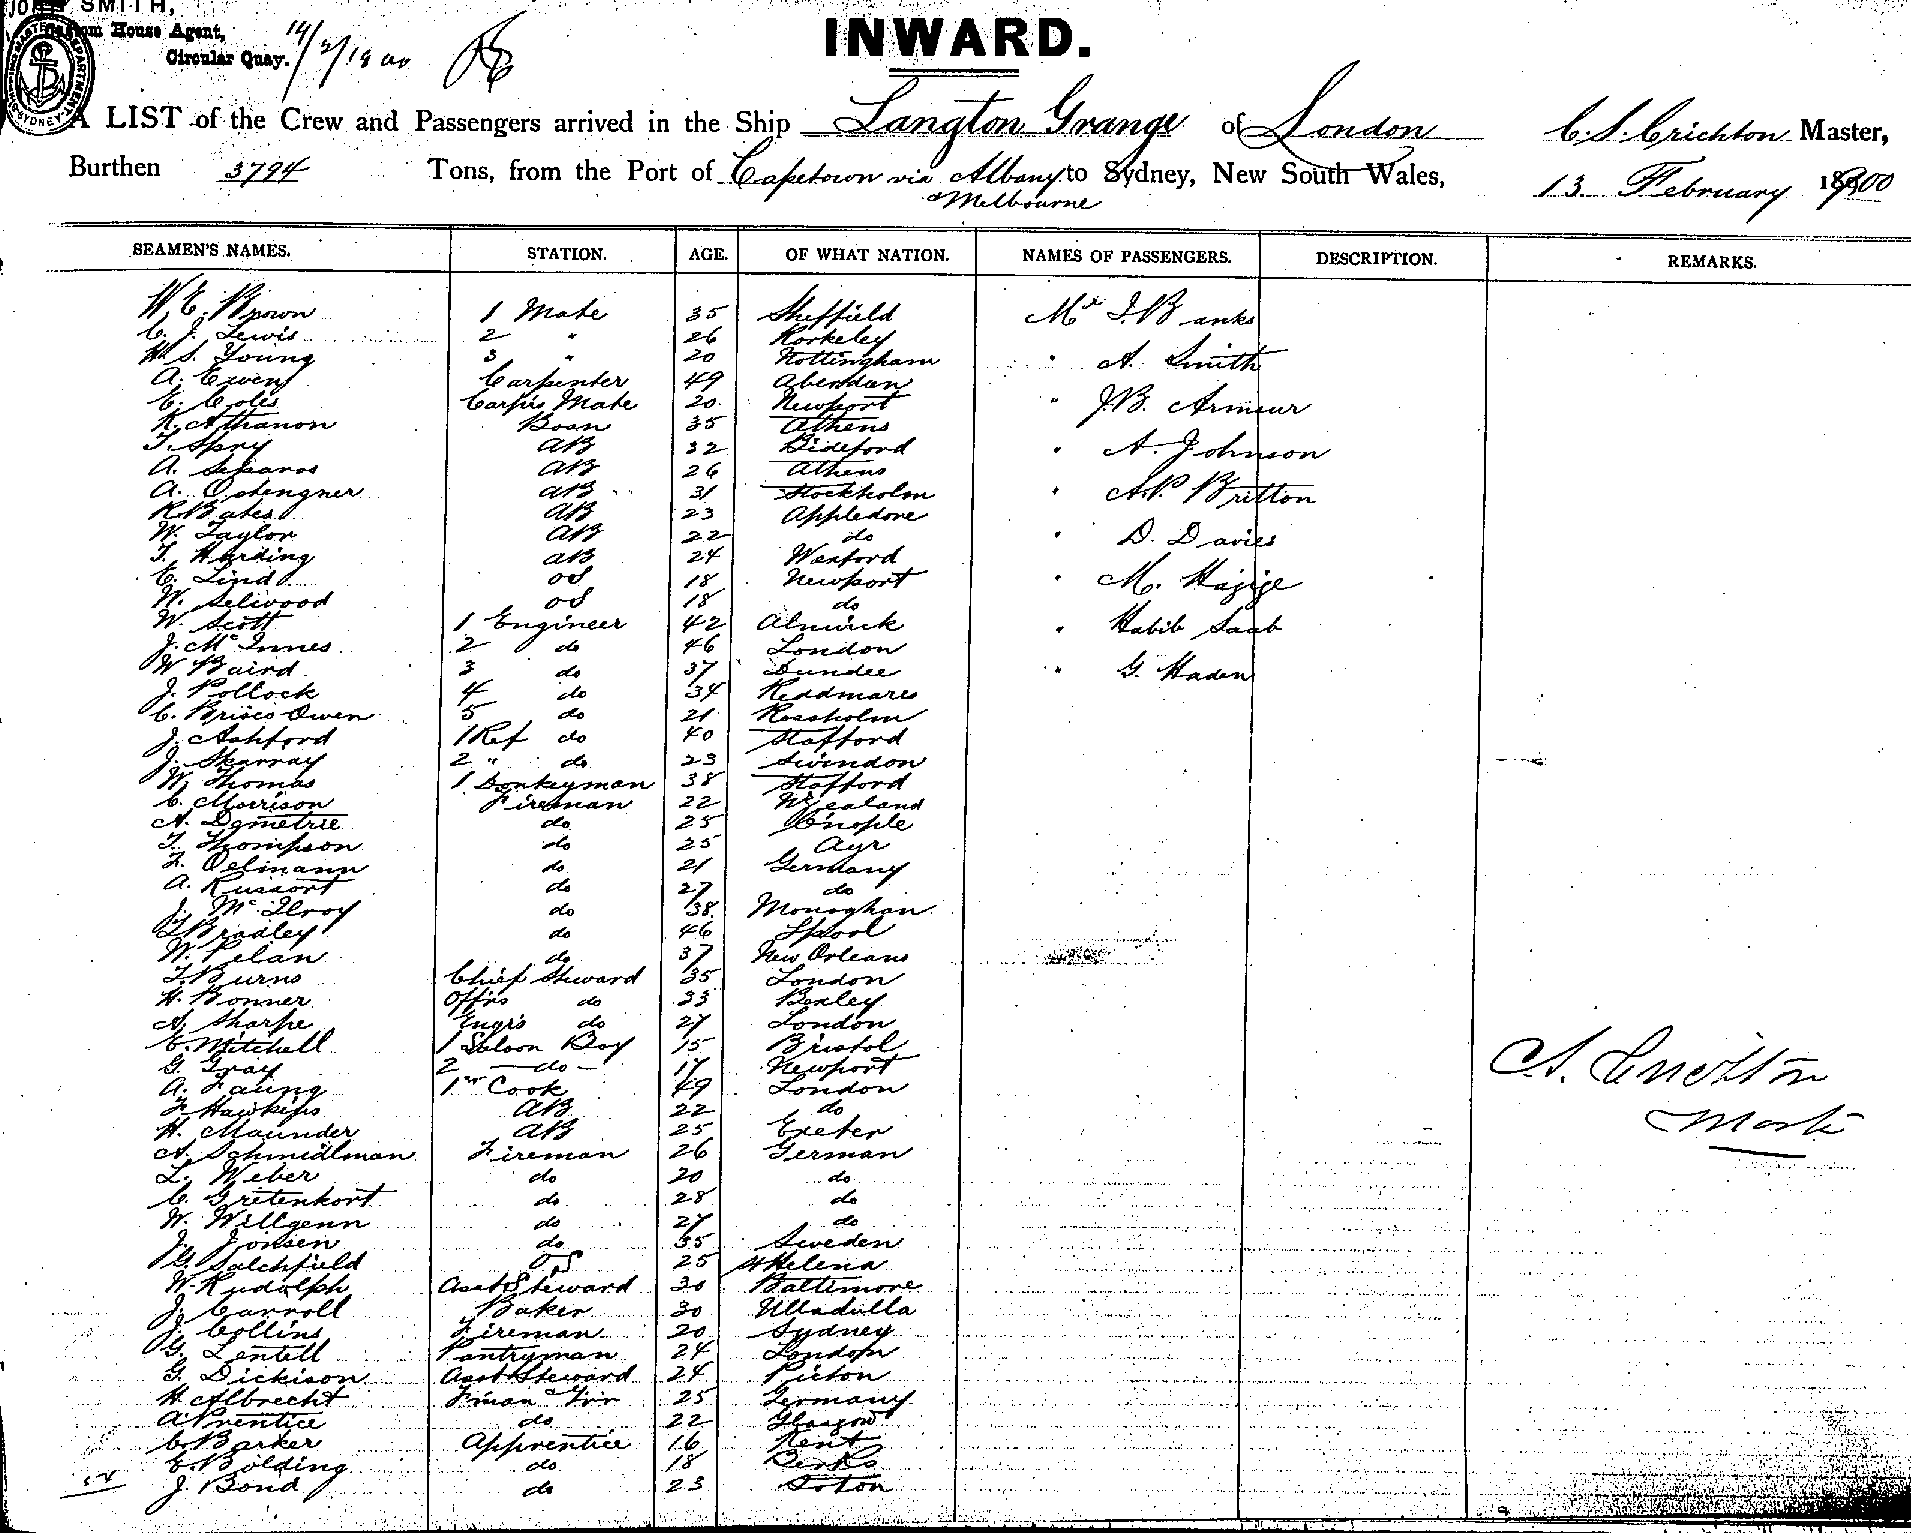 JOHN SMITH,
Custom House Agent,
Circular Quay. 14/2/1900
INWARD.
A LIST of the Crew and Passengers arrived in the Ship Langton Grange of London C. S. Crichton Master,
Burthen 3794 Tons, from the Port of Capetown via Albany to Sydney, New South Wales, 13 February 1900
Melbourne
SEAMEN'S NAMES. STATION. AGE. OF WHAT NATION. NAMES OF PASSENGERS. DESCRIPTION. REMARKS.
W. E. Brown 1 Mate 35 Sheffield Mr I. Banks
C. J. Lewis 2 " 26 Korkeley
W. S. Young 3 " 20 Nottingham " A. Smith
A. Ewen Carpenter 49 Aberdan
E. Coles Carp's Mate 20 Newport " J.B. Armour
K. Athanon Bosn 35 Athens
T. Spry AB 32 Bideford " A. Johnson
A. AB 26 Athens
A. Ostengner AB 31 Stockholm " A.P. Britton
R. Bates AB 23 Appledore
W. Taylor AB 22 do " D. Davies
T. Harding AB 24 Wexford
E. Lind OS 18 Newport " M. Hazige
W. Seliwood OS 18 do
W. Scott 1 Engineer 42 Alnwick " Habib Saab
J. McInnes 2 do 46 London
W Baird 3 do 37 Dundee " G. Haden
J. Pollock 4 do 34 Reddmares
C. Brisco Owen 5 do 21 Rossholm
J. Ashford 1 Ref do 40 Stafford
J. Skarray 2 " do 23 Swindon
W. Thomas 1 Donkeyman 38 Stafford
C. Morrison Fireman 22 N Zealand
A. Demetrie do 25 C'nople
T. Thompson do 25 Ayr
F. Oelmann do 21 Germany
A. Russort do 27 do
J. McIlroy do 38 Monaghan
T. Bradley do 46 L'pool
W. Pelan do 37 New Orleans
T. Burns Chief Steward 35 London
H. Bonner Offrs do 33 Bexley
A. Sharpe Engrs do 27 London
C. Mitchell 1 Saloon Boy 15 Bristol
G. Gray 2 - do - 17 Newport
A. Faung 1st Cook 49 London
F. Hawkins AB 22 do
H. Maunder AB 25 Exeter
A. Schmidlman Fireman 26 German
L. Weber do 20 do
C. Gretenkort do 28 do
W. Willgenn do 27 do
J. Jonsen do 35 Sweden
G. Salchfield OS 25 St Helena
W. Rudolph Asst Steward 30 Baltimore
J. Carroll Baker 30 Ulladulla
J. Collins Fireman 20 Sydney
G. Lentell Pantryman 24 London
G. Dickison Asst Steward 24 Picton
H Albrecht F'man & Trr 25 Germany
A Prentice do 22 Glasgow
C. Barker Apprentice 16 Kent
E. Bolding do 18 Berks
J. Bond do 23 Soton
C. S. Crichton
Mast
54